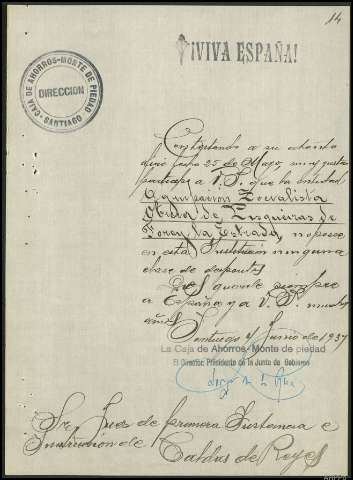 14
¡VIVA ESPAÑA!
CAJA DE AHORROS-MONTE DE PIEDAD
DIRECCION
SANTIAGO
Contestando a su atento
fecha 25 de Mayo, me
participar a V.S. que la entidad
Agrupación Socialista
Obrera de de
Forcarey la Estrada, no posee
en esta Institución ninguna
clase de depósitos
Dios guarde siempre
a España y a V.S. muchos
años
Santiago 4 Junio de 1937
La Caja de Ahorros-Monte de piedad
El Director, Presidente de la Junta de Gobierno
Sr. Juez de primera Instancia e
Instrucción de Caldas de Reyes